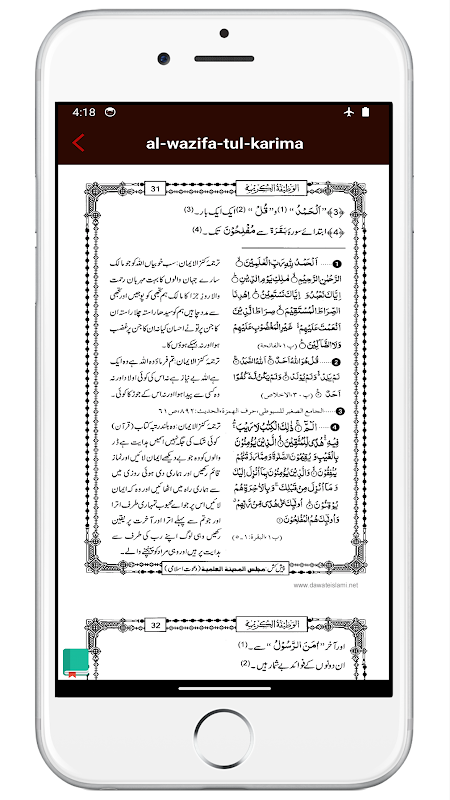 4:18
al-wazifa-tul-karima
31
الوظیفۃ الکریمۃ
﴿3﴾ ”اَلْحَمْدُ“ (1) و ”قُلْ“ (2) ایک ایک بار۔ (3)
﴿4﴾ ابتدائے سورۂ بَقَرَہ سے مُفْلِحُوْنَ تک۔ (4)
1 اَلْحَمْدُ لِلّٰهِ رَبِّ الْعٰلَمِیْنَ
الرَّحْمٰنِ الرَّحِیْمِ مٰلِكِ یَوْمِ الدِّیْنِ
اِیَّاكَ نَعْبُدُ وَ اِیَّاكَ نَسْتَعِیْنُ اِهْدِنَا
الصِّرَاطَ الْمُسْتَقِیْمَ صِرَاطَ الَّذِیْنَ
اَنْعَمْتَ عَلَیْهِمْ غَیْرِ الْمَغْضُوْبِ عَلَیْهِمْ
وَ لَا الضَّآلِّیْنَ (پ۱، الفاتحۃ)
ترجمۂ کنز الایمان: سب خوبیاں اللہ کو جو مالک
سارے جہان والوں کا بہت مہربان رحمت
والا روزِ جزا کا مالک ہم تجھی کو پوجیں اور تجھی
سے مدد چاہیں ہم کو سیدھا راستہ چلا راستہ ان
کا جن پر تو نے احسان کیا نہ ان کا جن پر غضب
ہوا اور نہ بہکے ہوؤں کا۔
2 قُلْ هُوَ اللّٰهُ اَحَدٌ اَللّٰهُ الصَّمَدُ
لَمْ یَلِدْ وَ لَمْ یُوْلَدْ وَ لَمْ یَكُنْ لَّهٗ كُفُوًا
اَحَدٌ (پ۳۰، الاخلاص)
ترجمۂ کنز الایمان: تم فرماؤ وہ اللہ ہے وہ ایک
ہے اللہ بے نیاز ہے نہ اس کی کوئی اولاد اور نہ
وہ کسی سے پیدا ہوا اور نہ اس کے جوڑ کا کوئی۔
3 ......الجامع الصغیر للسیوطی، حرف الهمزة، الحدیث: ۸۹۲، ص۶۱
4 الٓمّٓ ذٰلِكَ الْكِتٰبُ لَا رَیْبَ
فِیْهِ هُدًى لِّلْمُتَّقِیْنَ الَّذِیْنَ یُؤْمِنُوْنَ
بِالْغَیْبِ وَ یُقِیْمُوْنَ الصَّلٰوةَ وَ مِمَّا رَزَقْنٰهُمْ
یُنْفِقُوْنَ وَ الَّذِیْنَ یُؤْمِنُوْنَ بِمَاۤ اُنْزِلَ اِلَیْكَ
وَ مَاۤ اُنْزِلَ مِنْ قَبْلِكَ وَ بِالْاٰخِرَةِ هُمْ
یُوْقِنُوْنَ اُولٰٓىٕكَ عَلٰى هُدًى مِّنْ رَّبِّهِمْ
وَ اُولٰٓىٕكَ هُمُ الْمُفْلِحُوْنَ
(پ۱، البقرة: ۱۔۵)
ترجمۂ کنز الایمان: وہ بلند رتبہ کتاب (قرآن)
کوئی شک کی جگہ نہیں اس میں ہدایت ہے ڈر
والوں کو وہ جو بے دیکھے ایمان لائیں اور نماز
قائم رکھیں اور ہماری دی ہوئی روزی میں
سے ہماری راہ میں اٹھائیں اور وہ کہ ایمان
لائیں اس پر جو اے محبوب تمہاری طرف اترا
اور جو تم سے پہلے اترا اور آخرت پر یقین
رکھیں وہی لوگ اپنے رب کی طرف سے
ہدایت پر ہیں اور وہی مراد کو پہنچنے والے۔
پیش کش: مجلس المدینۃ العلمیۃ (دعوت اسلامی)
www.dawateislami.net
32
الوظیفۃ الکریمۃ
اور آخر ”اٰمَنَ الرَّسُوْلُ“ سے۔ (1)
ان دونوں کے فوائد بے شمار ہیں۔ (2)